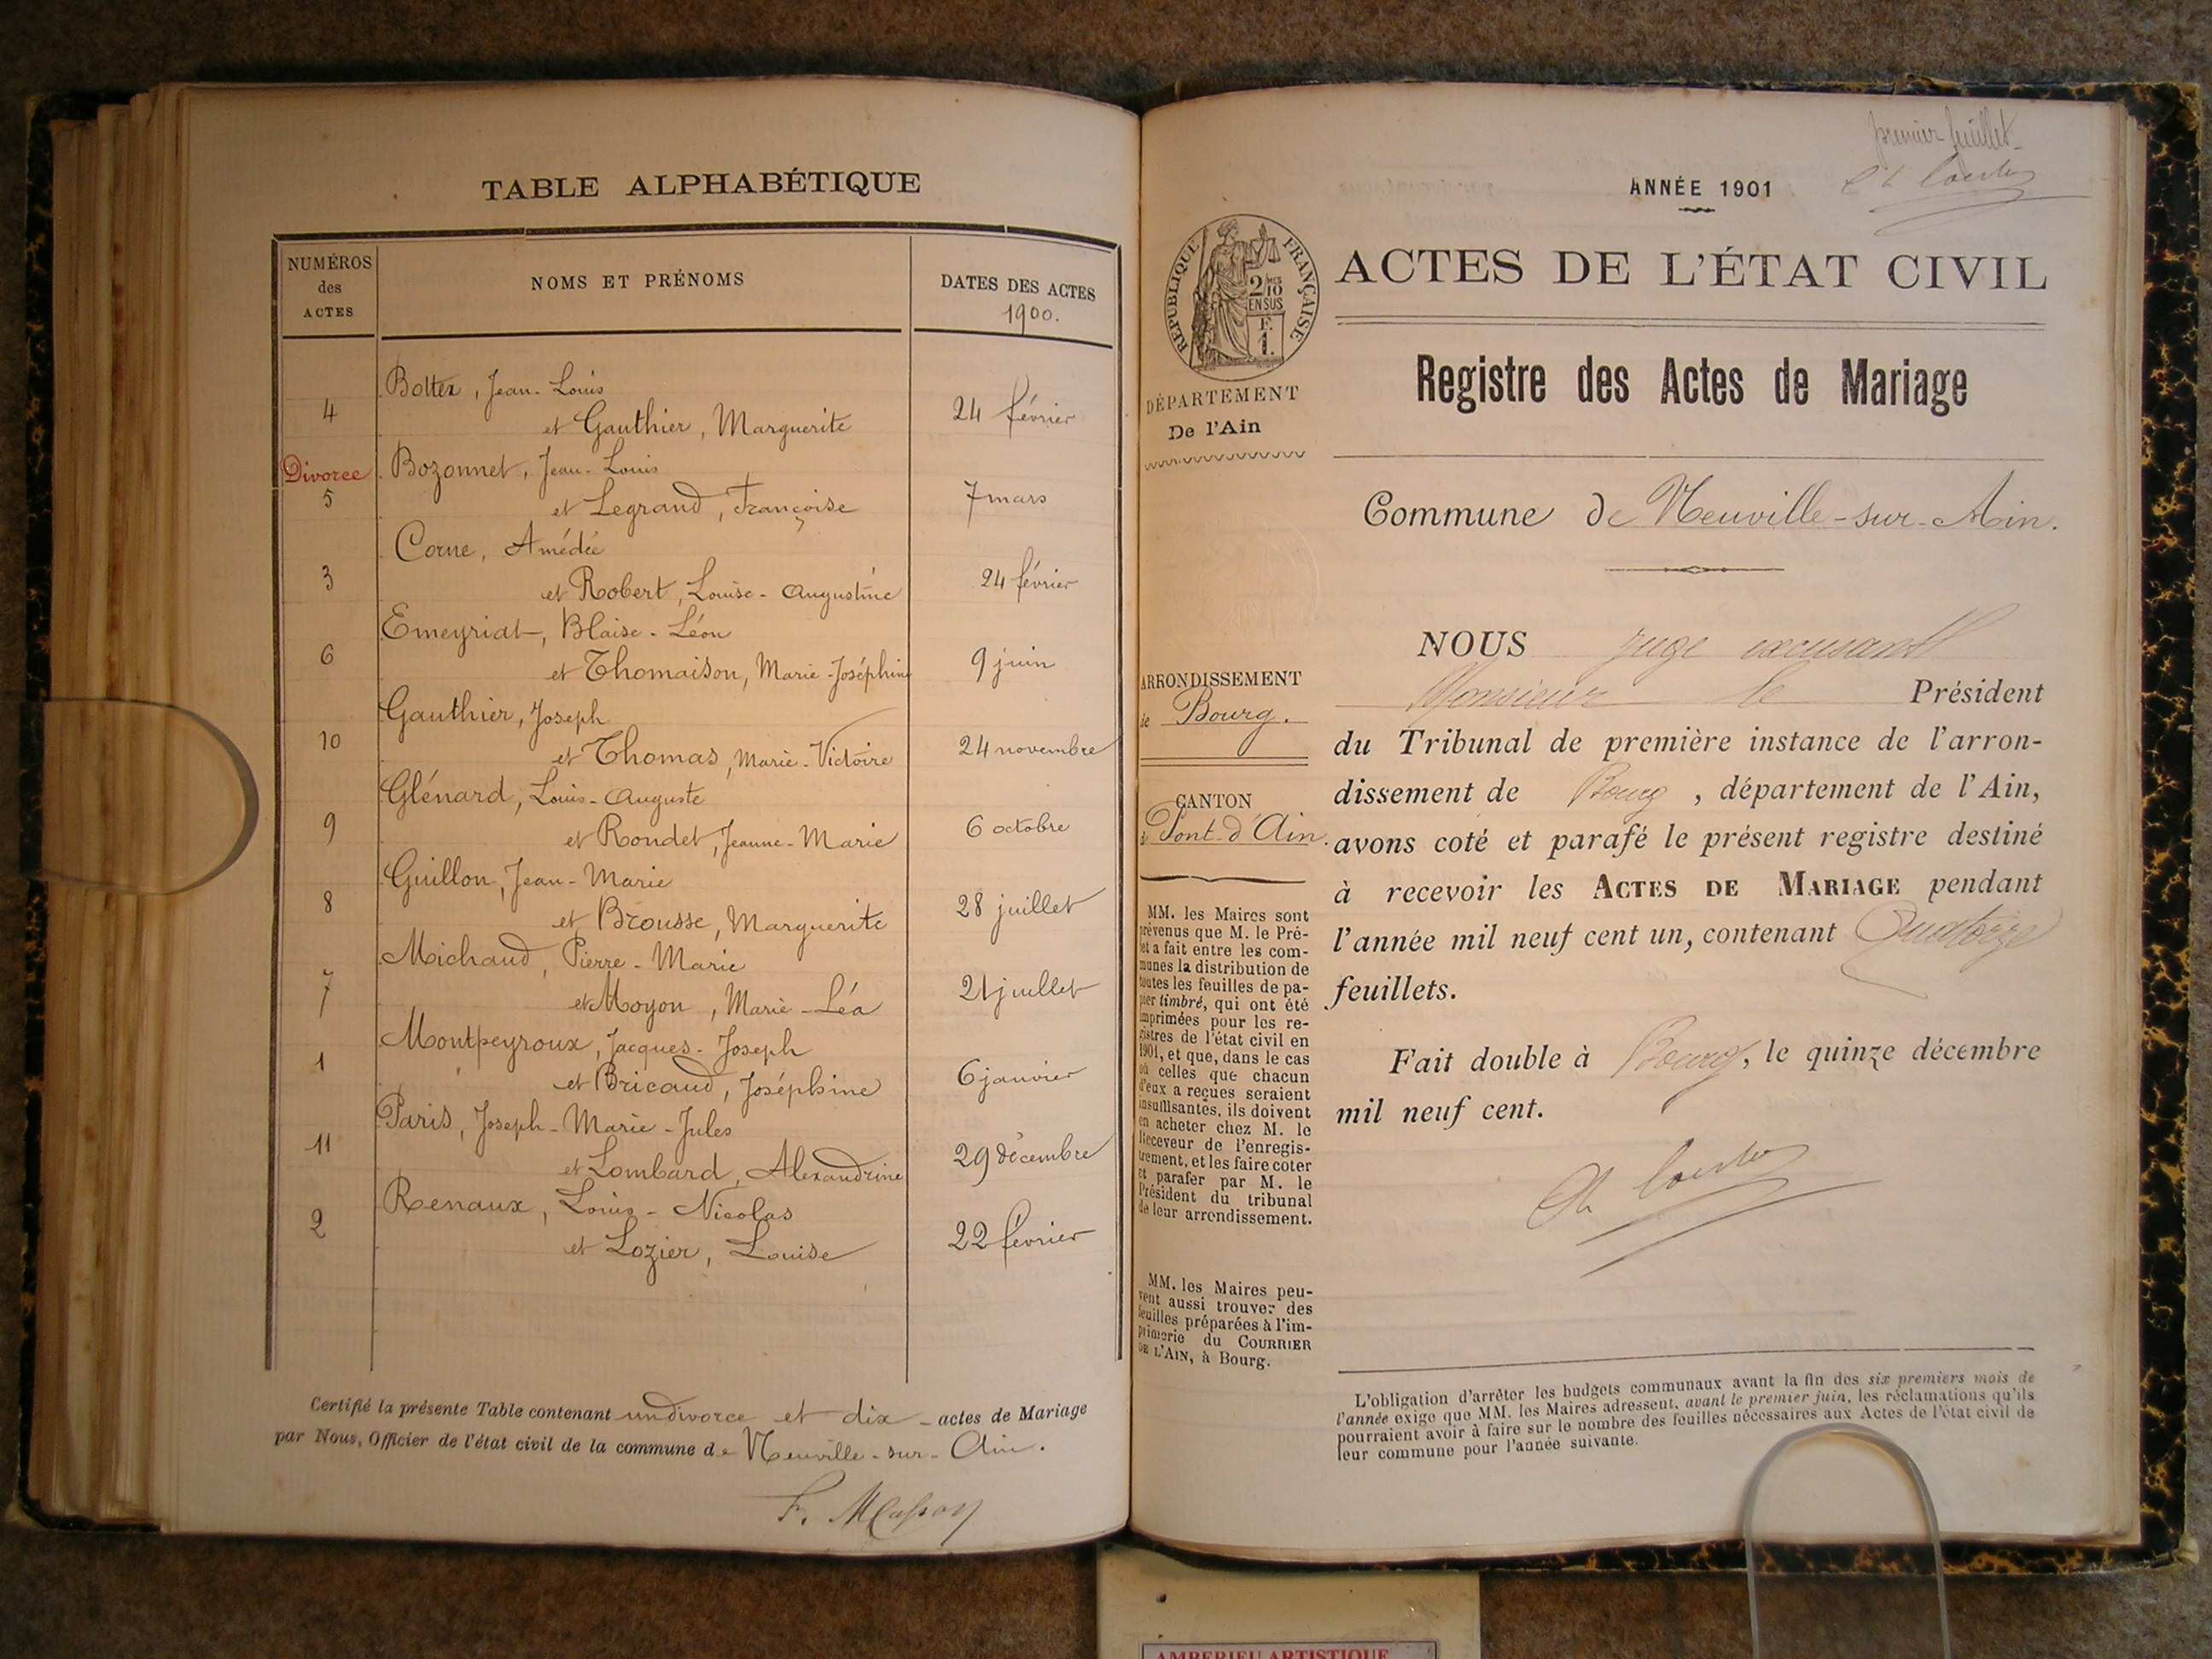 TABLE ALPHABÉTIQUE
NUMÉROS
des
ACTES
NOMS ET PRÉNOMS
DATES DES ACTES
1900.
Bottex, Jean-Louis
4 et Gauthier, Marguerite 24 février
Divorce Bozonnet, Jean-Louis
5 et Legrand, Françoise 7 mars
Corne, Amédée
3 et Robert, Louise-Augustine 24 février
Emeyriat, Blaise-Léon
6 et Thomaison, Marie-Joséphine 9 juin
Gauthier, Joseph
10 et Thomas, Marie-Victoire 24 novembre
Glénard, Louis-Auguste
9 et Rondet, Jeanne-Marie 6 octobre
Guillon, Jean-Marie
8 et Brousse, Marguerite 28 juillet
Michaud, Pierre-Marie
7 et Moyon, Marie-Léa 21 juillet
Montpeyroux, Jacques-Joseph
1 et Bricaud, Joséphine 6 janvier
Paris, Joseph-Marie-Jules
11 et Lombard, Alexandrine 29 décembre
Renaux, Louis-Nicolas
2 et Lozier, Louise 22 février
Certifié la présente Table contenant un divorce et dix actes de Mariage
par Nous, Officier de l'état civil de la commune de Neuville-sur-Ain.
F. Masson
premier feuillet
ANNÉE 1901
RÉPUBLIQUE FRANÇAISE
2/10
EN SUS
F.
1.
ACTES DE L'ÉTAT CIVIL
Registre des Actes de Mariage
DÉPARTEMENT
De l'Ain
Commune de Neuville-sur-Ain.
ARRONDISSEMENT
de Bourg.
CANTON
de Pont-d'Ain.
MM. les Maires sont
prévenus que M. le Pré-
fet a fait entre les com-
munes la distribution de
toutes les feuilles de pa-
pier timbré, qui ont été
imprimées pour les re-
gistres de l'état civil en
1901, et que, dans le cas
où celles que chacun
d'eux a reçues seraient
insuffisantes, ils doivent
en acheter chez M. le
Receveur de l'enregis-
trement, et les faire coter
et parafer par M. le
Président du tribunal
de leur arrondissement.
MM. les Maires peu-
vent aussi trouver des
feuilles préparées à l'im-
primerie du COURRIER
DE L'AIN, à Bourg.
NOUS juge
Monsieur le Président
du Tribunal de première instance de l'arron-
dissement de Bourg, département de l'Ain,
avons coté et parafé le présent registre destiné
à recevoir les ACTES DE MARIAGE pendant
l'année mil neuf cent un, contenant Quatorze
feuillets.
Fait double à Bourg, le quinze décembre
mil neuf cent.
L'obligation d'arrêter les budgets communaux avant la fin des six premiers mois de
l'année exige que MM. les Maires adressent, avant le premier juin, les réclamations qu'ils
pourraient avoir à faire sur le nombre des feuilles nécessaires aux Actes de l'état civil de
leur commune pour l'année suivante.
AMBERIEU ARTISTIQUE